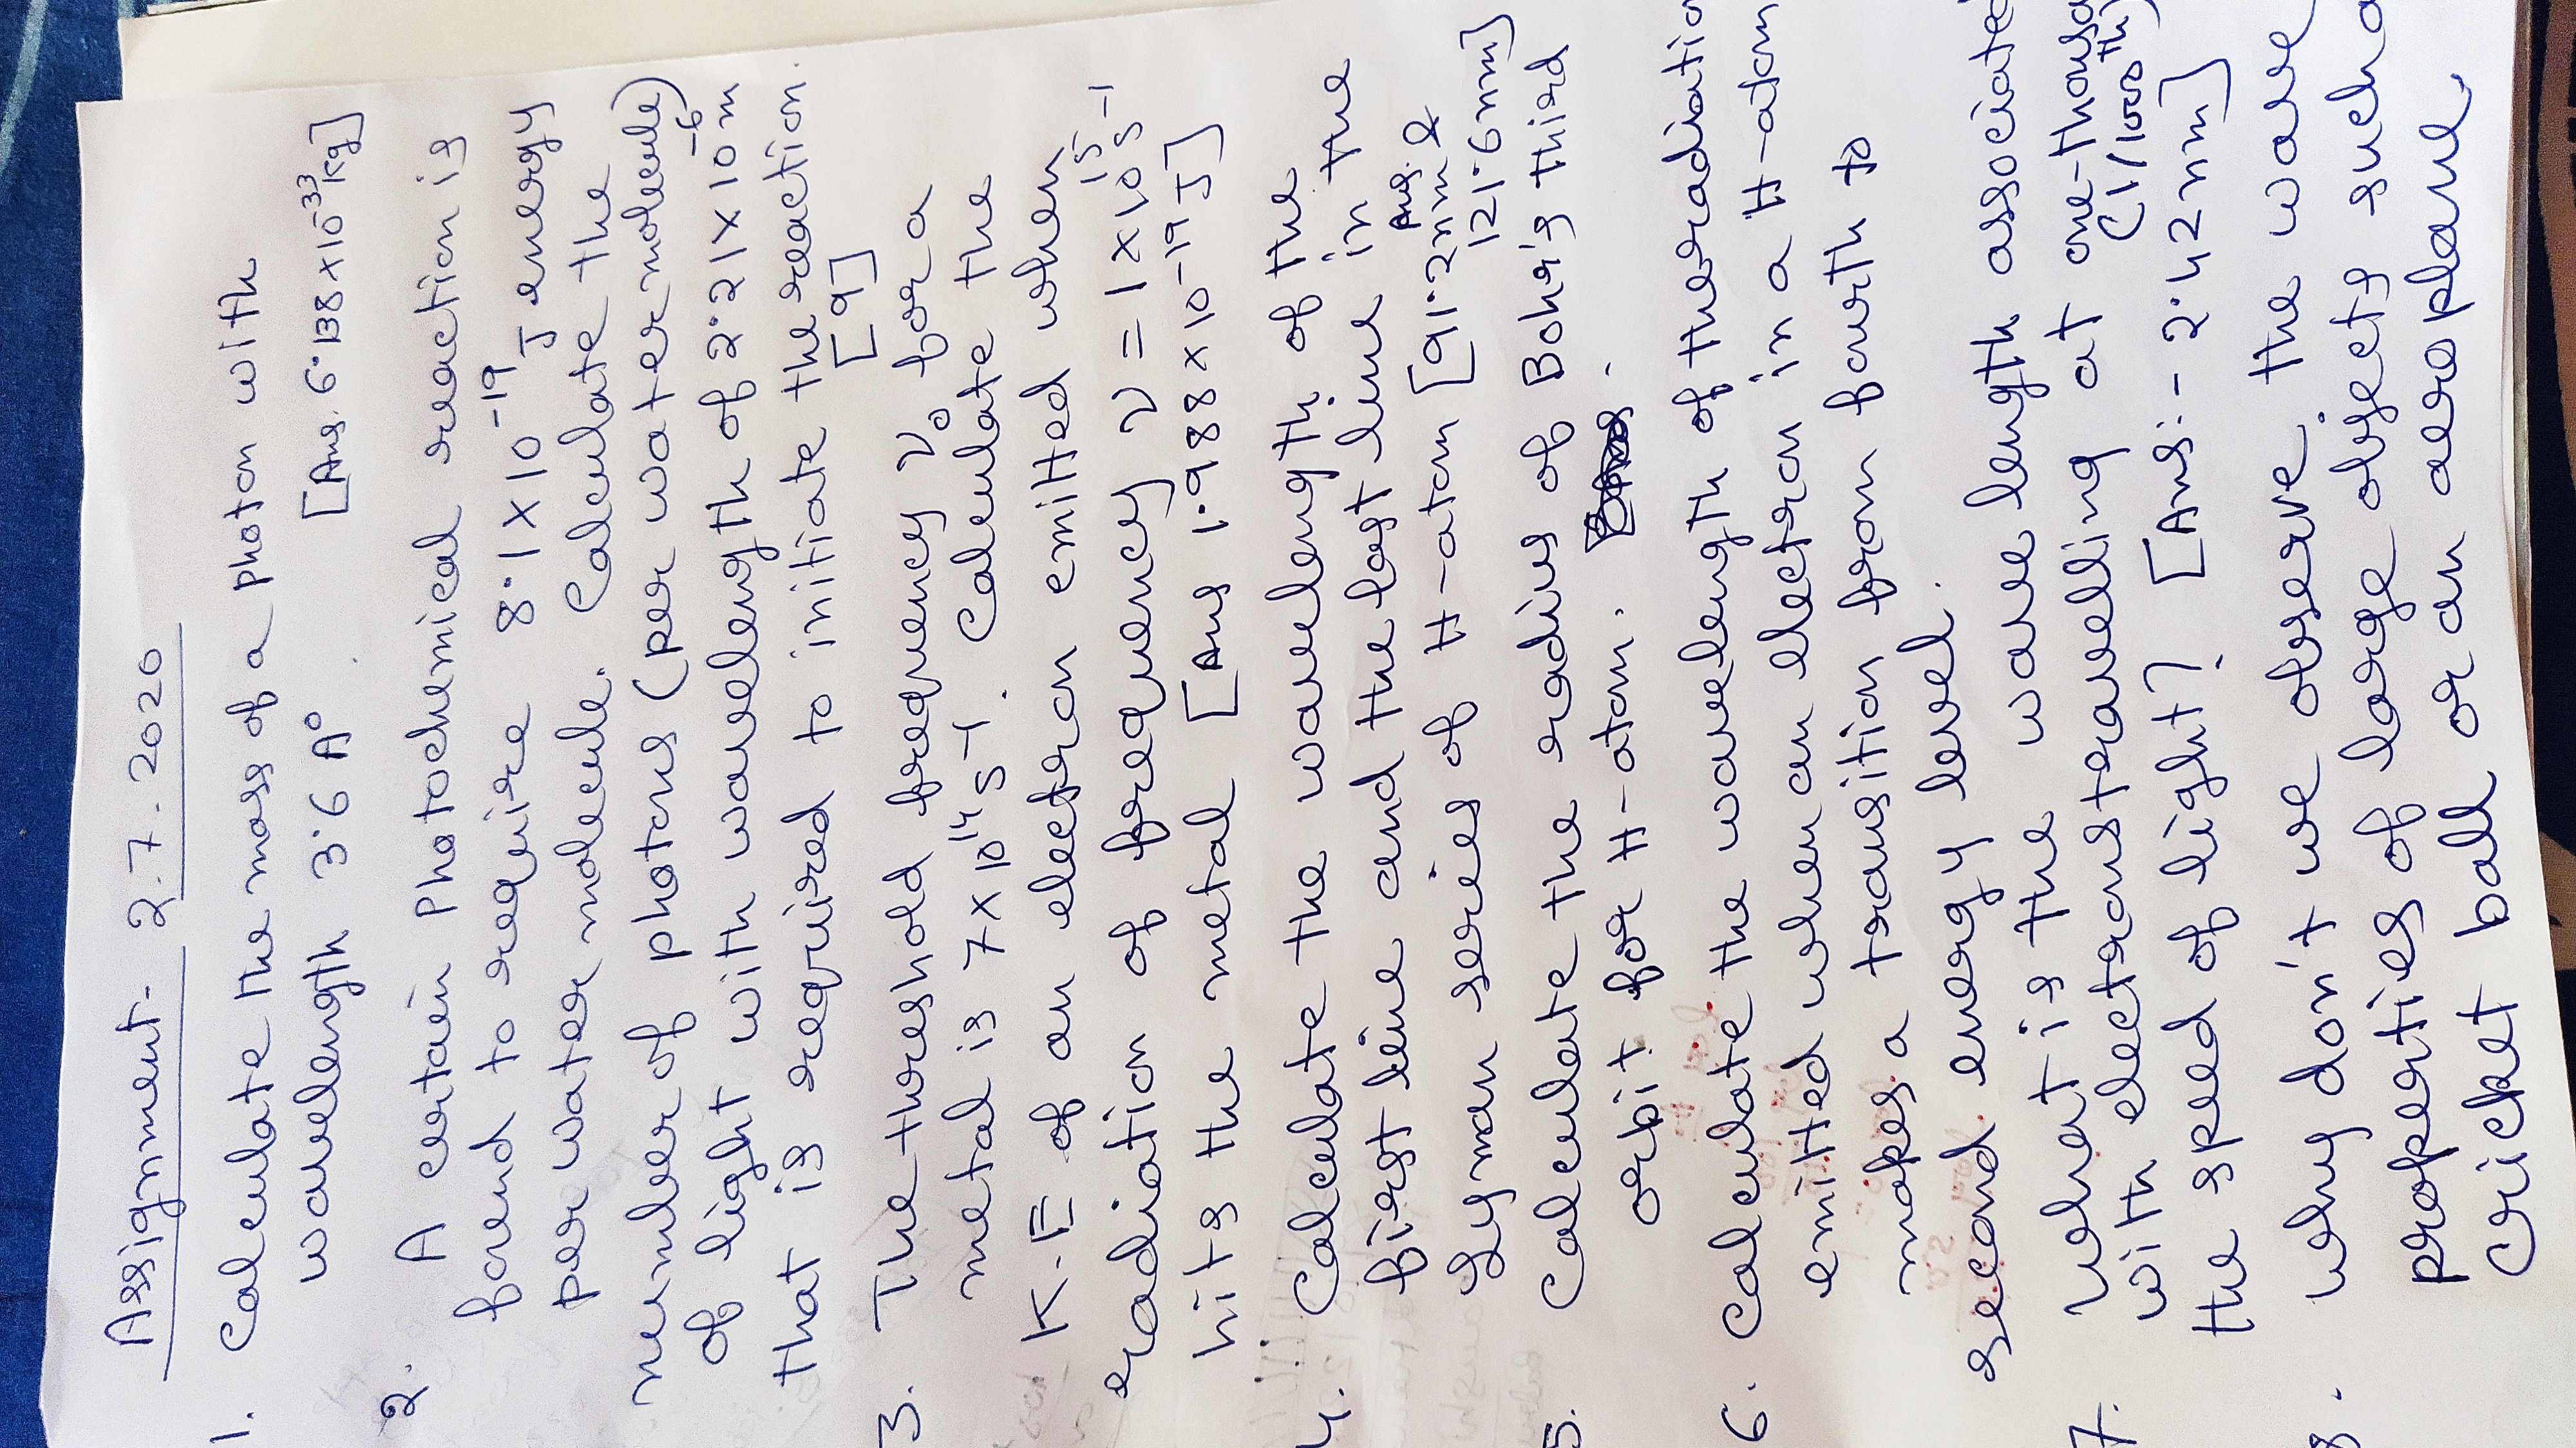 Assignment - 2.7.2020
1. Calculate the mass of a photon with
wavelength 3.6 A° [Ans. 6.138 x 10^-33 kg]
2. A certain photochemical reaction is
found to require 8.1 x 10^-19 J energy
per water molecule. Calculate the
number of photons (per water molecule)
of light with wavelength of 2.21 x 10^-6 m
that is required to initiate the reaction.
[9]
3. The threshold frequency ν₀ for a
metal is 7 x 10^14 s^-1. Calculate the
K.E of an electron emitted when
radiation of frequency ν = 1 x 10^15 s^-1
hits the metal [Ans 1.988 x 10^-19 J]
4. Calculate the wavelength of the
first line and the last line in the
Lyman series of H-atom [Ans. 91.2nm &
121.6nm]
5. Calculate the radius of Bohr's third
orbit for H-atom.
6. Calculate the wavelength of the radiation
emitted when an electron in a H-atom
makes a transition from fourth to
second energy level.
7. What is the wave length associated
with electrons travelling at one-
(1/1000 th)
the speed of light? [Ans:- 2.42nm]
8. Why don't we observe the wave
properties of large objects such a
cricket ball or an aeroplane